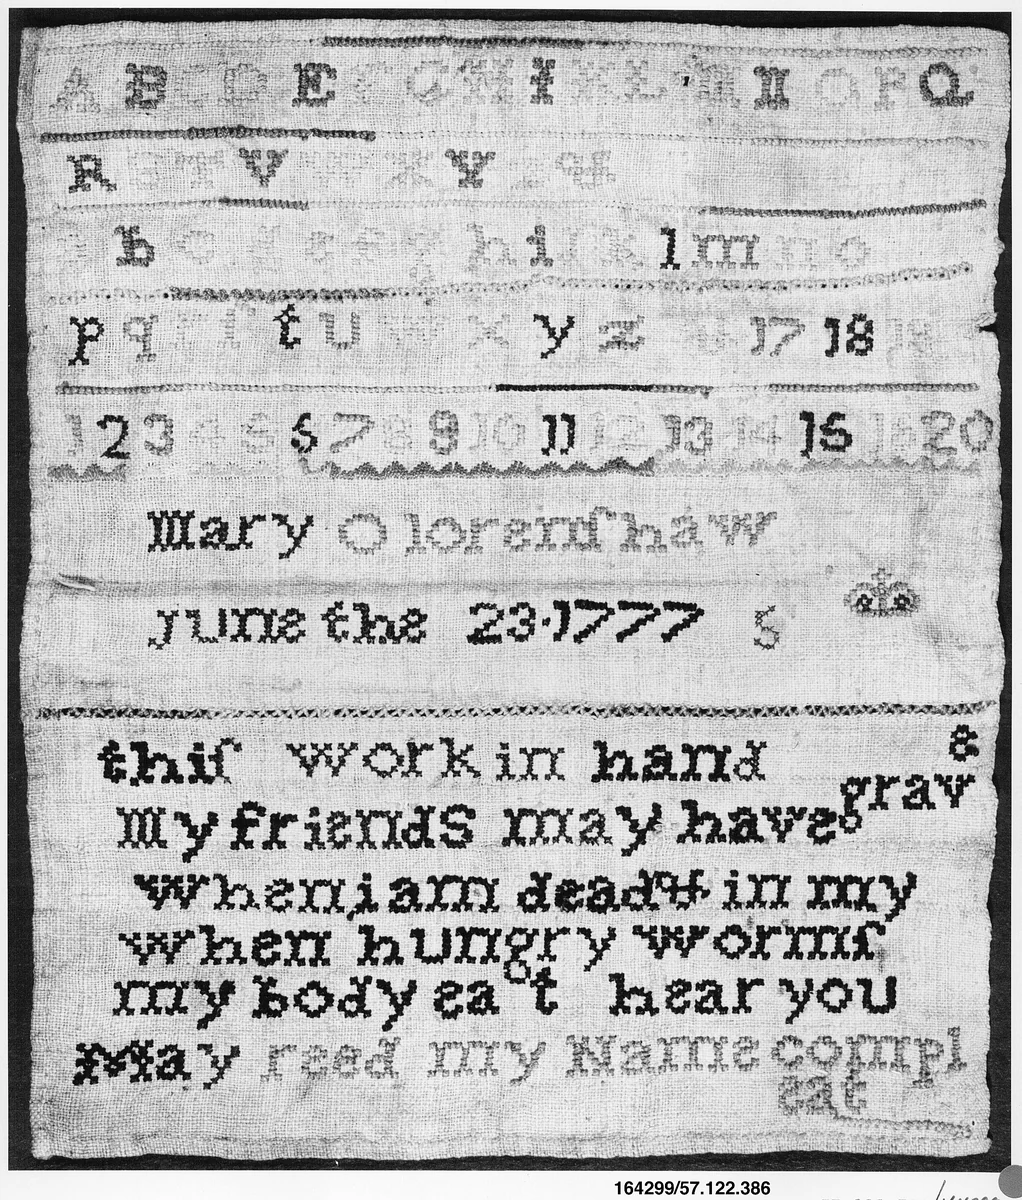 A B C D E F G H I K L M N O P Q
R S T V W X Y Z &
a b c d e f g h i k l m n o
p q r ſ t u w x y z & 17 18 19
1 2 3 4 5 6 7 8 9 10 11 12 13 14 15 16 20
Mary O lorenſhaw
june the 23·1777 S
thiſ work in hand
My friends may have
when i am dead & in my grave
when hungry wormſ
my body eat hear you
May reed my Name compl
eat
164299/57.122.386